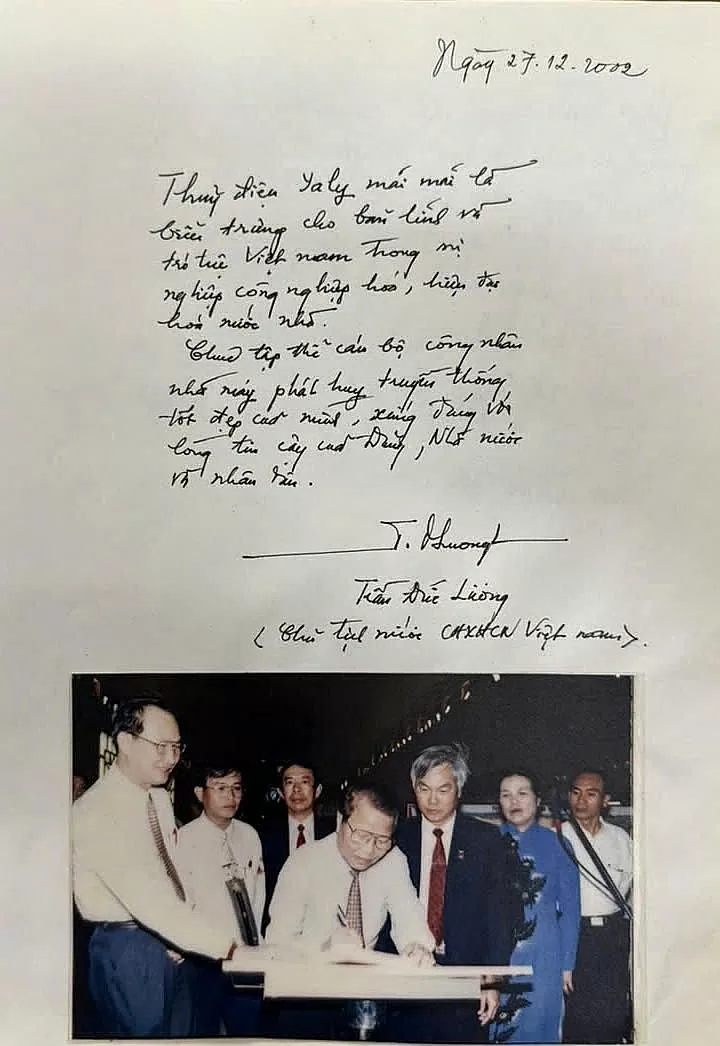 Ngày 27.12.2002
Thuỷ điện Yaly mãi mãi là
biểu trưng cho bản lĩnh và
trí tuệ Việt nam trong sự
nghiệp công nghiệp hoá, hiện đại
hoá nước nhà.
Chúc tập thể cán bộ công nhân
nhà máy phát huy truyền thống
tốt đẹp của mình, xứng đáng với
lòng tin cậy của Đảng, Nhà nước
và nhân dân.
T. D Luong
Trần Đức Lương
(Chủ tịch nước CHXHCN Việt nam).